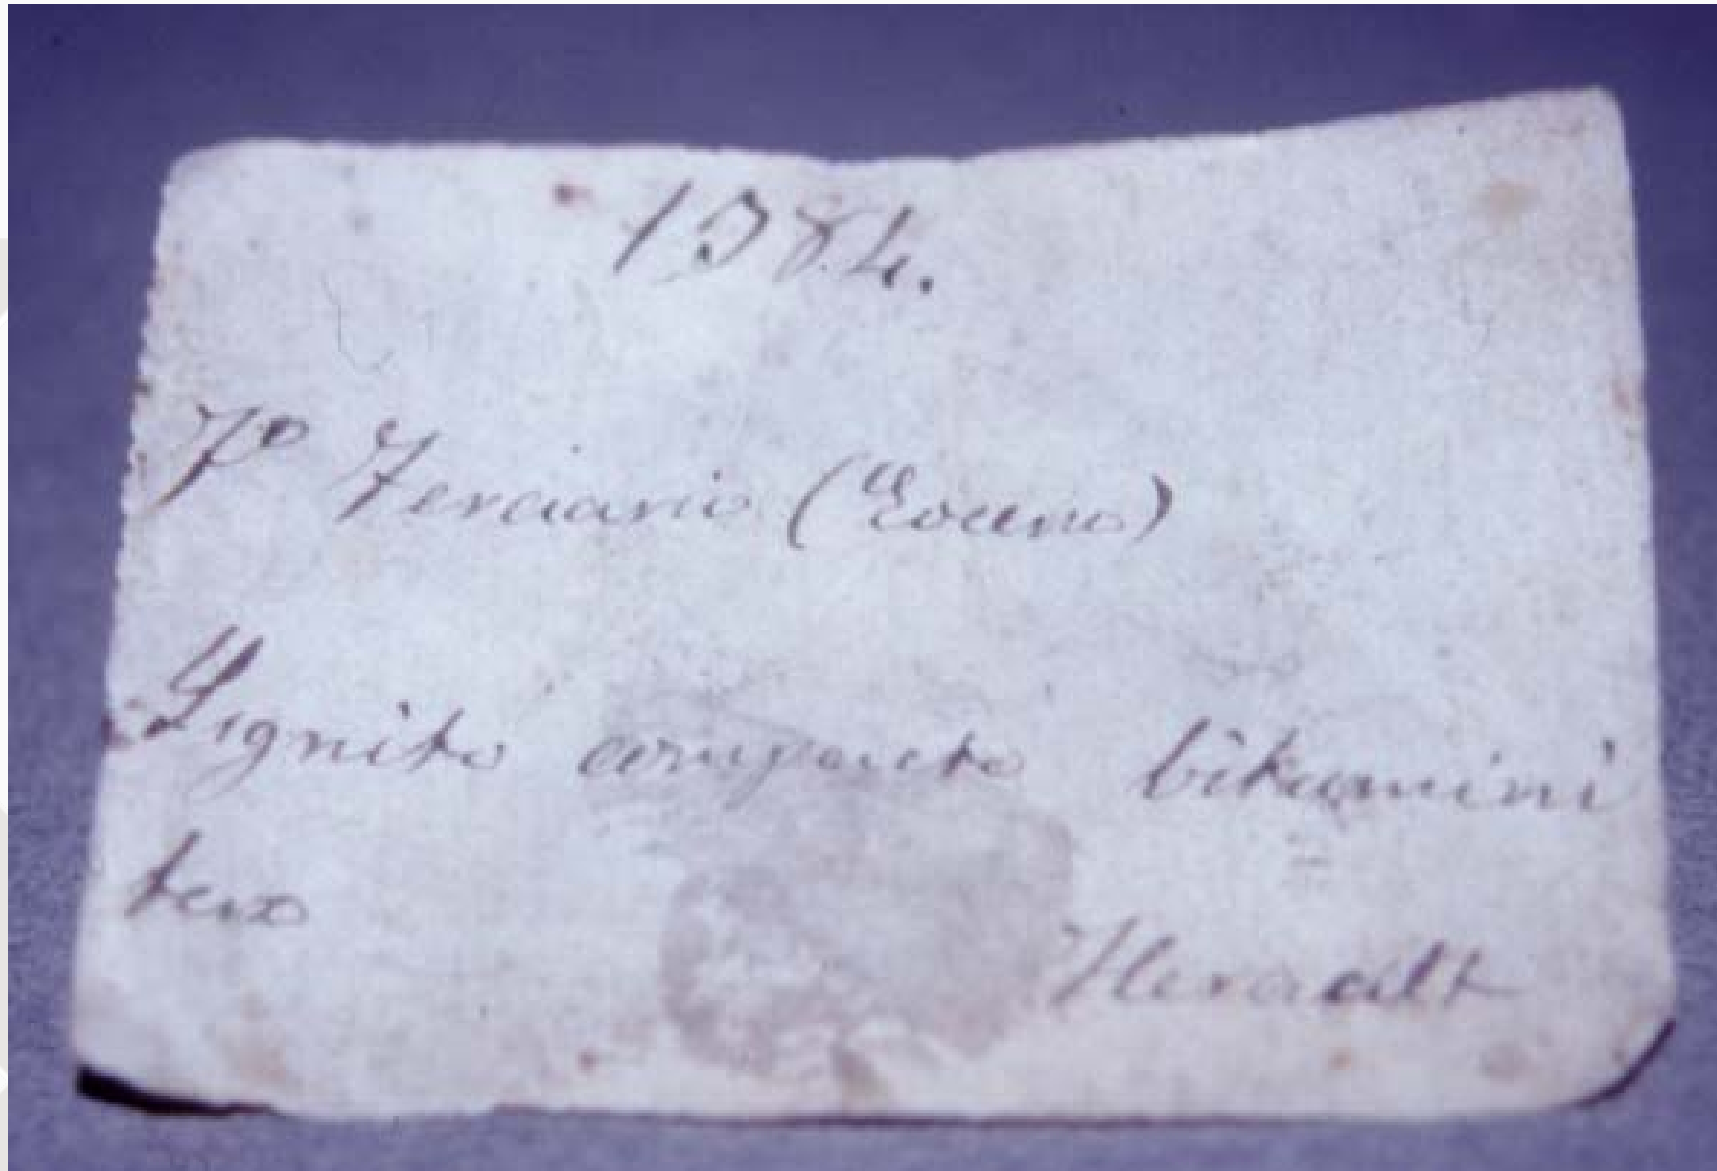 1384.
Tº Terciario (Eoceno)
Lignito compacto bitumini
tero
Herault